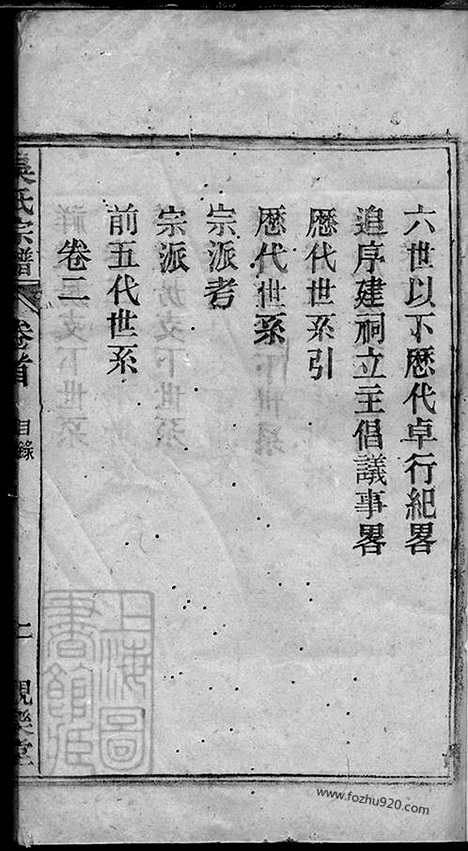 六世以下歷代卓行紀畧
追序建祠立主倡議事畧
歷代世系引
歷代世系
宗派考
宗派
前五代世系
卷二
氏宗譜
卷首
目錄
二
上海圖書館藏
www.fozhu920.com